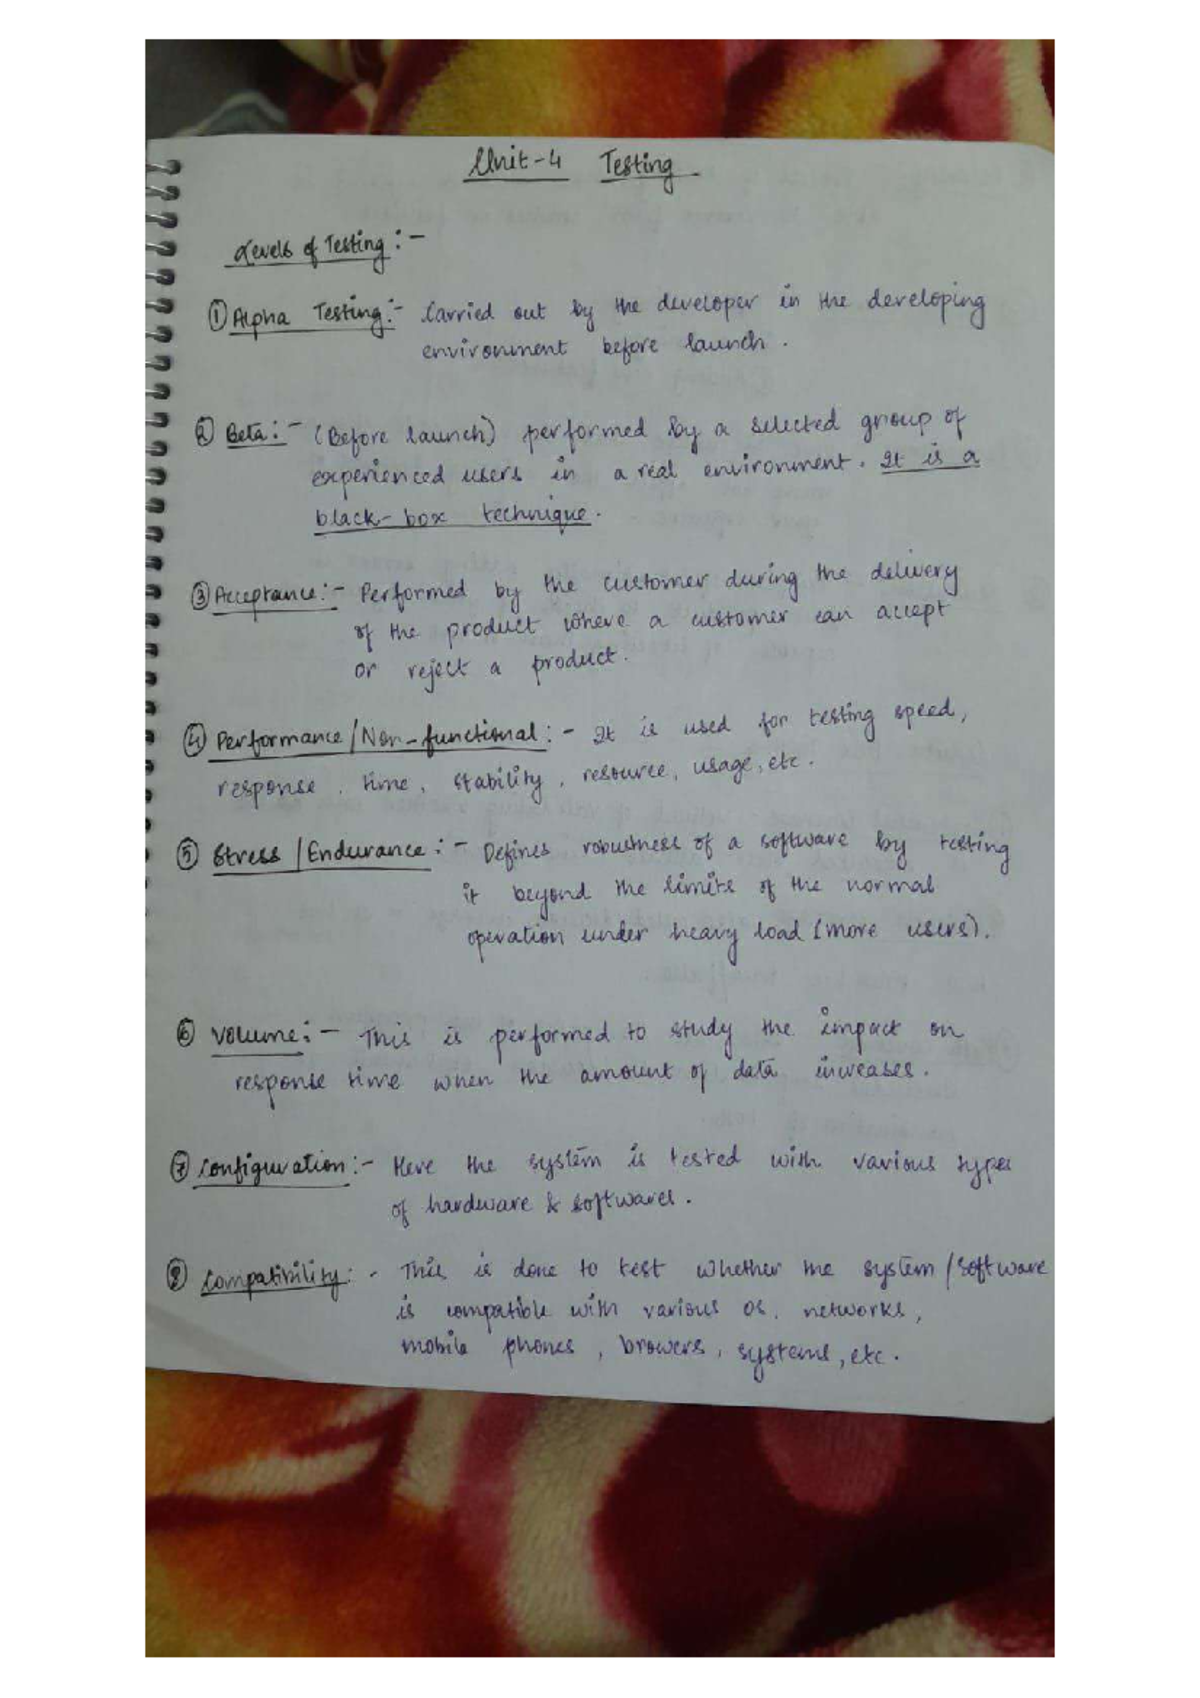 Unit-4 Testing
Levels of Testing :-
① Alpha Testing:- Carried out by the developer in the developing
environment before launch.
② Beta:- (Before launch) performed by a selected group of
experienced users in a real environment. It is a
black-box technique.
③ Acceptance:- Performed by the customer during the delivery
of the product where a customer can accept
or reject a product.
④ Performance/Non-functional:- It is used for testing speed,
response, time, stability, resource, usage, etc.
⑤ Stress/Endurance:- Defines robustness of a software by testing
it beyond the limits of the normal
operation under heavy load (more users).
⑥ Volume:- This is performed to study the impact on
response time when the amount of data increases.
⑦ Configuration:- Here the system is tested with various types
of hardware & softwares.
⑧ Compatibility:- This is done to test whether the system/software
is compatible with various os, networks,
mobile phones, browers, systems, etc.